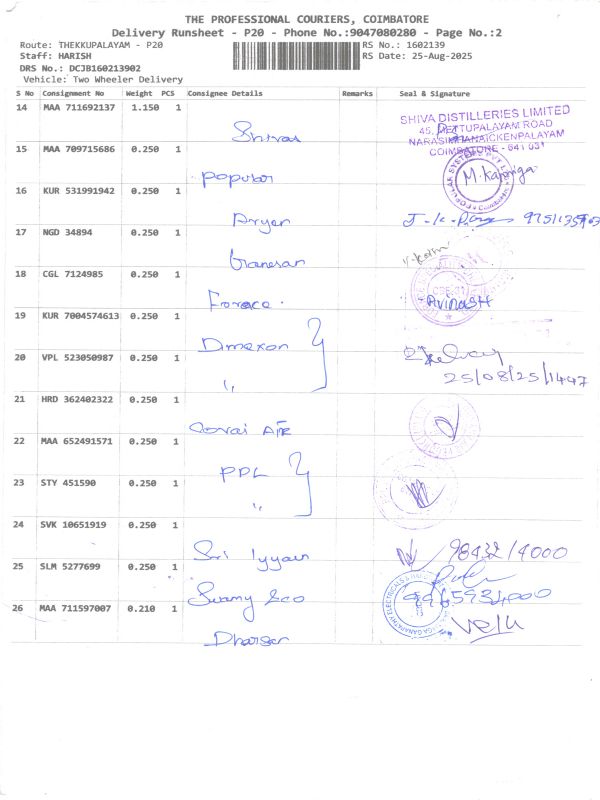 THE PROFESSIONAL COURIERS, COIMBATORE
Delivery Runsheet - P20 - Phone No.:9047080280 - Page No.:2
Route: THEKKUPALAYAM - P20 RS No.: 1602139
Staff: HARISH RS Date: 25-Aug-2025
DRS No.: DCJB160213902
Vehicle: Two Wheeler Delivery
S No Consignment No Weight PCS Consignee Details Remarks Seal & Signature
14 MAA 711692137 1.150 1
Shivas
SHIVA DISTILLERIES LIMITED
45, METTUPALAYAM ROAD
NARASIMHANAICKENPALAYAM
COIMBATORE - 641 031
15 MAA 709715686 0.250 1
Popular M. Kanniga
16 KUR 531991942 0.250 1
Aryan
17 NGD 34894 0.250 1
Ganesan
18 CGL 7124985 0.250 1
Forace. Avinash
19 KUR 7004574613 0.250 1
Dmexon
20 VPL 523050987 0.250 1
" 25/08/25/1447
21 HRD 362402322 0.250 1
Covai Air
22 MAA 652491571 0.250 1
PPL
23 STY 451590 0.250 1
"
24 SVK 10651919 0.250 1
Sri Iyyan 98432/4000
25 SLM 5277699 0.250 1
Swamy &co
26 MAA 711597007 0.210 1
Dharsan Velu